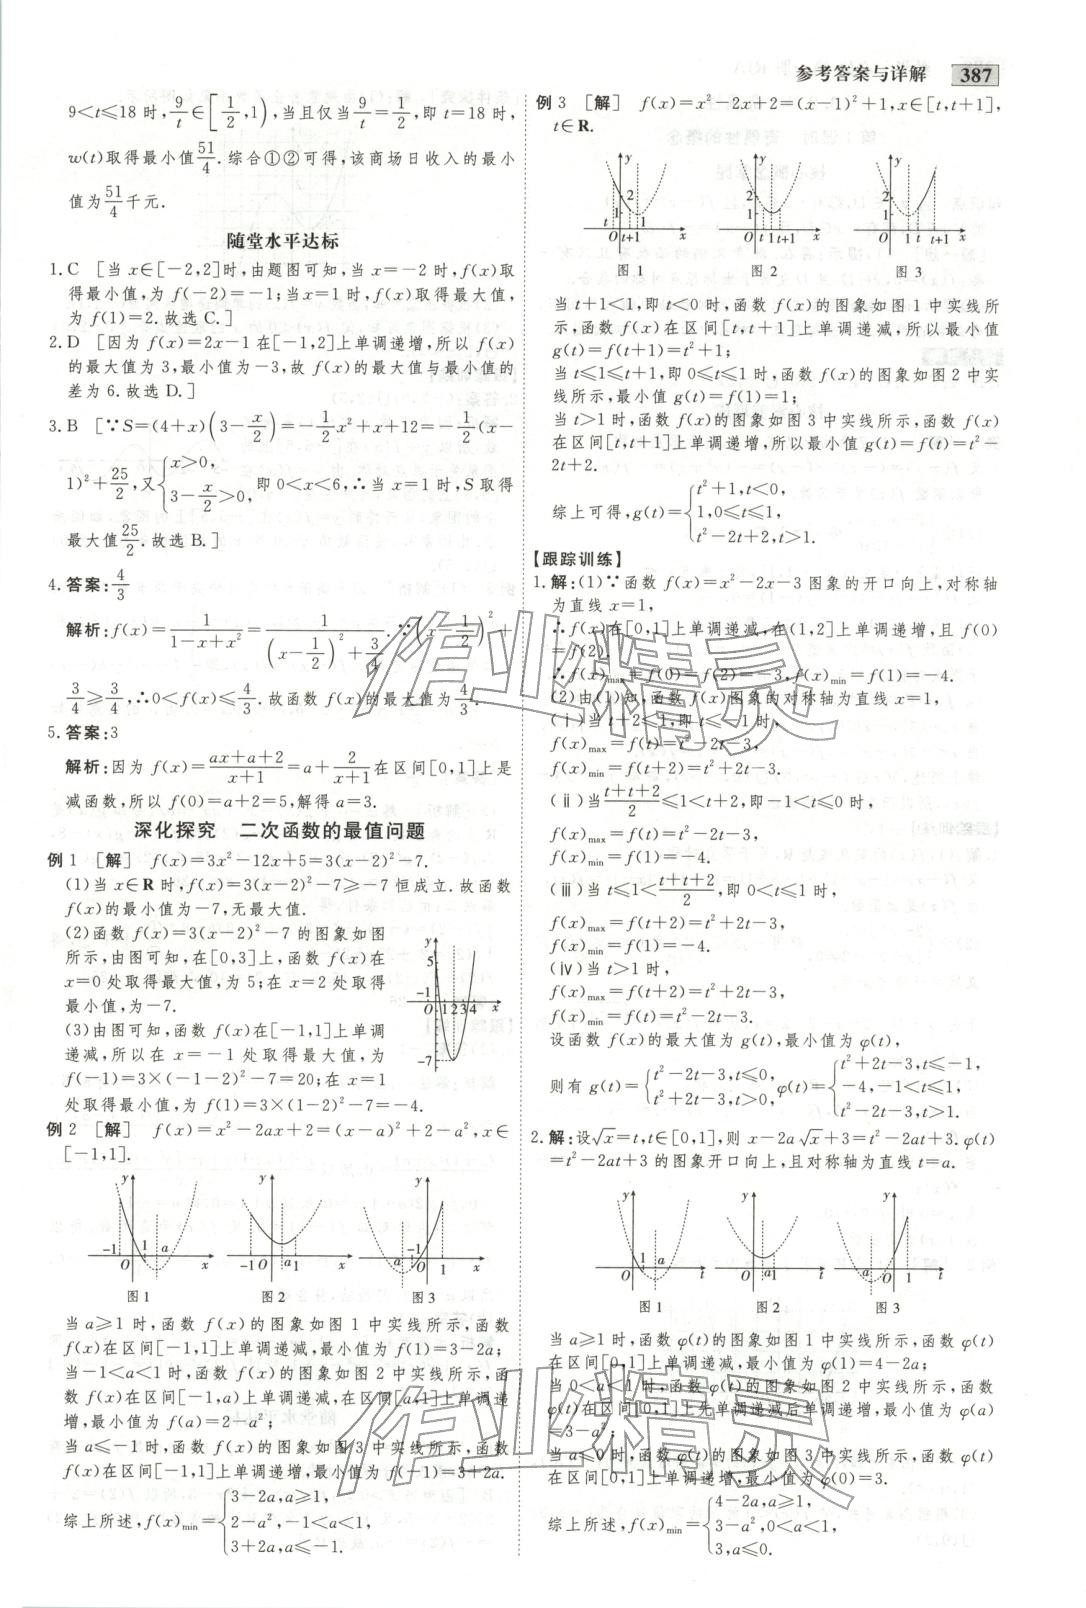 参考答案与详解 387
9<t≤18 时,9/t∈[1/2,1),当且仅当9/t=1/2,即 t=18 时,
w(t)取得最小值51/4.综合①②可得,该商场日收入的最小
值为51/4千元.
随堂水平达标
1.C [当 x∈[-2,2]时,由题图可知,当 x=-2 时,f(x)取
得最小值,为 f(-2)=-1;当 x=1 时,f(x)取得最大值,
为 f(1)=2.故选 C.]
2.D [因为 f(x)=2x-1 在[-1,2]上单调递增,所以 f(x)
的最大值为 3,最小值为-3,故 f(x)的最大值与最小值的
差为 6.故选 D.]
3.B [∵S=(4+x)(3-x/2)=-1/2x²+x+12=-1/2(x-
1)²+25/2,又{x>0, 3-x/2>0, 即 0<x<6,∴当 x=1 时,S 取得
最大值25/2.故选 B.]
4.答案:4/3
解析:f(x)=1/(1-x+x²)=1/((x-1/2)²+3/4).∵(x-1/2)²+
3/4≥3/4,∴0<f(x)≤4/3.故函数 f(x)的最大值为4/3.
5.答案:3
解析:因为 f(x)=(ax+a+2)/(x+1)=a+2/(x+1)在区间[0,1]上是
减函数,所以 f(0)=a+2=5,解得 a=3.
深化探究 二次函数的最值问题
例 1 [解] f(x)=3x²-12x+5=3(x-2)²-7.
(1)当 x∈R 时,f(x)=3(x-2)²-7≥-7 恒成立.故函数
f(x)的最小值为-7,无最大值.
(2)函数 f(x)=3(x-2)²-7 的图象如图
所示,由图可知,在[0,3]上,函数 f(x)在
x=0处取得最大值,为 5;在 x=2 处取得
最小值,为-7.
(3)由图可知,函数 f(x)在[-1,1]上单调
递减,所以在 x=-1 处取得最大值,为
f(-1)=3×(-1-2)²-7=20;在 x=1
处取得最小值,为 f(1)=3×(1-2)²-7=-4.
y
5
-1 O 1 2 3 4 x
-7
例 2 [解] f(x)=x²-2ax+2=(x-a)²+2-a²,x∈
[-1,1].
y -1 1 a O x
y -1 O a 1 x
y a -1 O 1 x
图 1 图 2 图 3
当 a≥1 时,函数 f(x)的图象如图 1 中实线所示,函数
f(x)在区间[-1,1]上单调递减,最小值为 f(1)=3-2a;
当-1<a<1 时,函数 f(x)的图象如图 2 中实线所示,函
数 f(x)在区间[-1,a)上单调递减,在区间[a,1]上单调递
增,最小值为 f(a)=2-a²;
当 a≤-1 时,函数 f(x)的图象如图 3 中实线所示,函数
f(x)在区间[-1,1]上单调递增,最小值为 f(-1)=3+2a.
综上所述,f(x)min={3-2a,a≥1, 2-a²,-1<a<1, 3+2a,a≤-1.
例 3 [解] f(x)=x²-2x+2=(x-1)²+1,x∈[t,t+1],
t∈R.
y 2 1 t O t+1 1 x
y 2 1 O t 1 t+1 x
y 2 1 O 1 t t+1 x
图 1 图 2 图 3
当 t+1<1,即 t<0 时,函数 f(x)的图象如图 1 中实线所
示,函数 f(x)在区间[t,t+1]上单调递减,所以最小值
g(t)=f(t+1)=t²+1;
当 t≤1≤t+1,即 0≤t≤1 时,函数 f(x)的图象如图 2 中实
线所示,最小值 g(t)=f(1)=1;
当 t>1 时,函数 f(x)的图象如图 3 中实线所示,函数 f(x)
在区间[t,t+1]上单调递增,所以最小值 g(t)=f(t)=t²-
2t+2.
综上可得,g(t)={t²+1,t<0, 1,0≤t≤1, t²-2t+2,t>1.
【跟踪训练】
1.解:(1)∵函数 f(x)=x²-2x-3 图象的开口向上,对称轴
为直线 x=1,
∴f(x)在[0,1]上单调递减,在(1,2]上单调递增,且 f(0)
=f(2).
∴f(x)max=f(0)=f(2)=-3,f(x)min=f(1)=-4.
(2)由(1)知,函数 f(x)图象的对称轴为直线 x=1,
(ⅰ)当 t+2≤1,即 t≤-1 时,
f(x)max=f(t)=t²-2t-3,
f(x)min=f(t+2)=t²+2t-3.
(ⅱ)当(t+t+2)/2≤1<t+2,即-1<t≤0 时,
f(x)max=f(t)=t²-2t-3,
f(x)min=f(1)=-4.
(ⅲ)当 t≤1<(t+t+2)/2,即 0<t≤1 时,
f(x)max=f(t+2)=t²+2t-3,
f(x)min=f(1)=-4.
(ⅳ)当 t>1 时,
f(x)max=f(t+2)=t²+2t-3,
f(x)min=f(t)=t²-2t-3.
设函数 f(x)的最大值为 g(t),最小值为 φ(t),
则有 g(t)={t²-2t-3,t≤0, t²+2t-3,t>0, φ(t)={t²+2t-3,t≤-1, -4,-1<t≤1, t²-2t-3,t>1.
2.解:设√x=t,t∈[0,1],则 x-2a√x+3=t²-2at+3.φ(t)
=t²-2at+3 的图象开口向上,且对称轴为直线 t=a.
y O 1 a t
y O a 1 t
y a O 1 t
图 1 图 2 图 3
当 a≥1 时,函数 φ(t)的图象如图 1 中实线所示,函数 φ(t)
在区间[0,1]上单调递减,最小值为 φ(1)=4-2a;
当 0<a<1 时,函数 φ(t)的图象如图 2 中实线所示,函数
φ(t)在区间[0,1]上先单调递减后单调递增,最小值为 φ(a)
=3-a²;
当 a≤0 时,函数 φ(t)的图象如图 3 中实线所示,函数 φ(t)
在区间[0,1]上单调递增,最小值为 φ(0)=3.
综上所述,f(x)min={4-2a,a≥1, 3-a²,0<a<1, 3,a≤0.
作业精灵
作业精灵